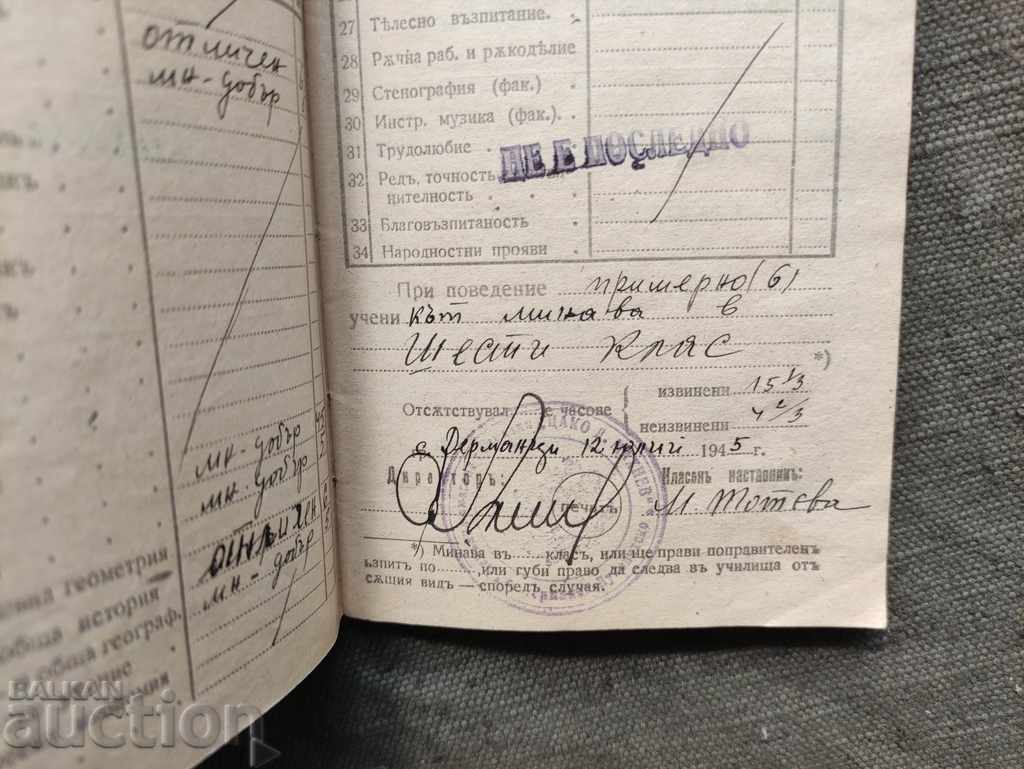 отличен
мн-добър
мн-добър
мн-добър
отличен
мн-добър
геометрия
обща история
обща географ.
27 Тѣлесно възпитание.
28 Рѫчна раб. и рѫкодѣлие
29 Стенография (фак.)
30 Инстр. музика (фак.).
31 Трудолюбие
НЕ Е ПОСЛЕДНО
32 Редъ, точность
нителность
33 Благовъзпитаность
34 Народностни прояви
При поведение примерно (6)
учени кът минава в
шести клас *)
Отсѫтствувал е часове { извинени 15 1/3
неизвинени 4 2/3
с. Дерманци 12 юлий 1945 г.
Директоръ: Класенъ наставникъ:
печатъ М. Тотева
*) Минава въ класъ, или ще прави поправителенъ
изпитъ по или губи право да следва въ училища отъ
сѫщия видъ — споредъ случая.
BALKAN
auction